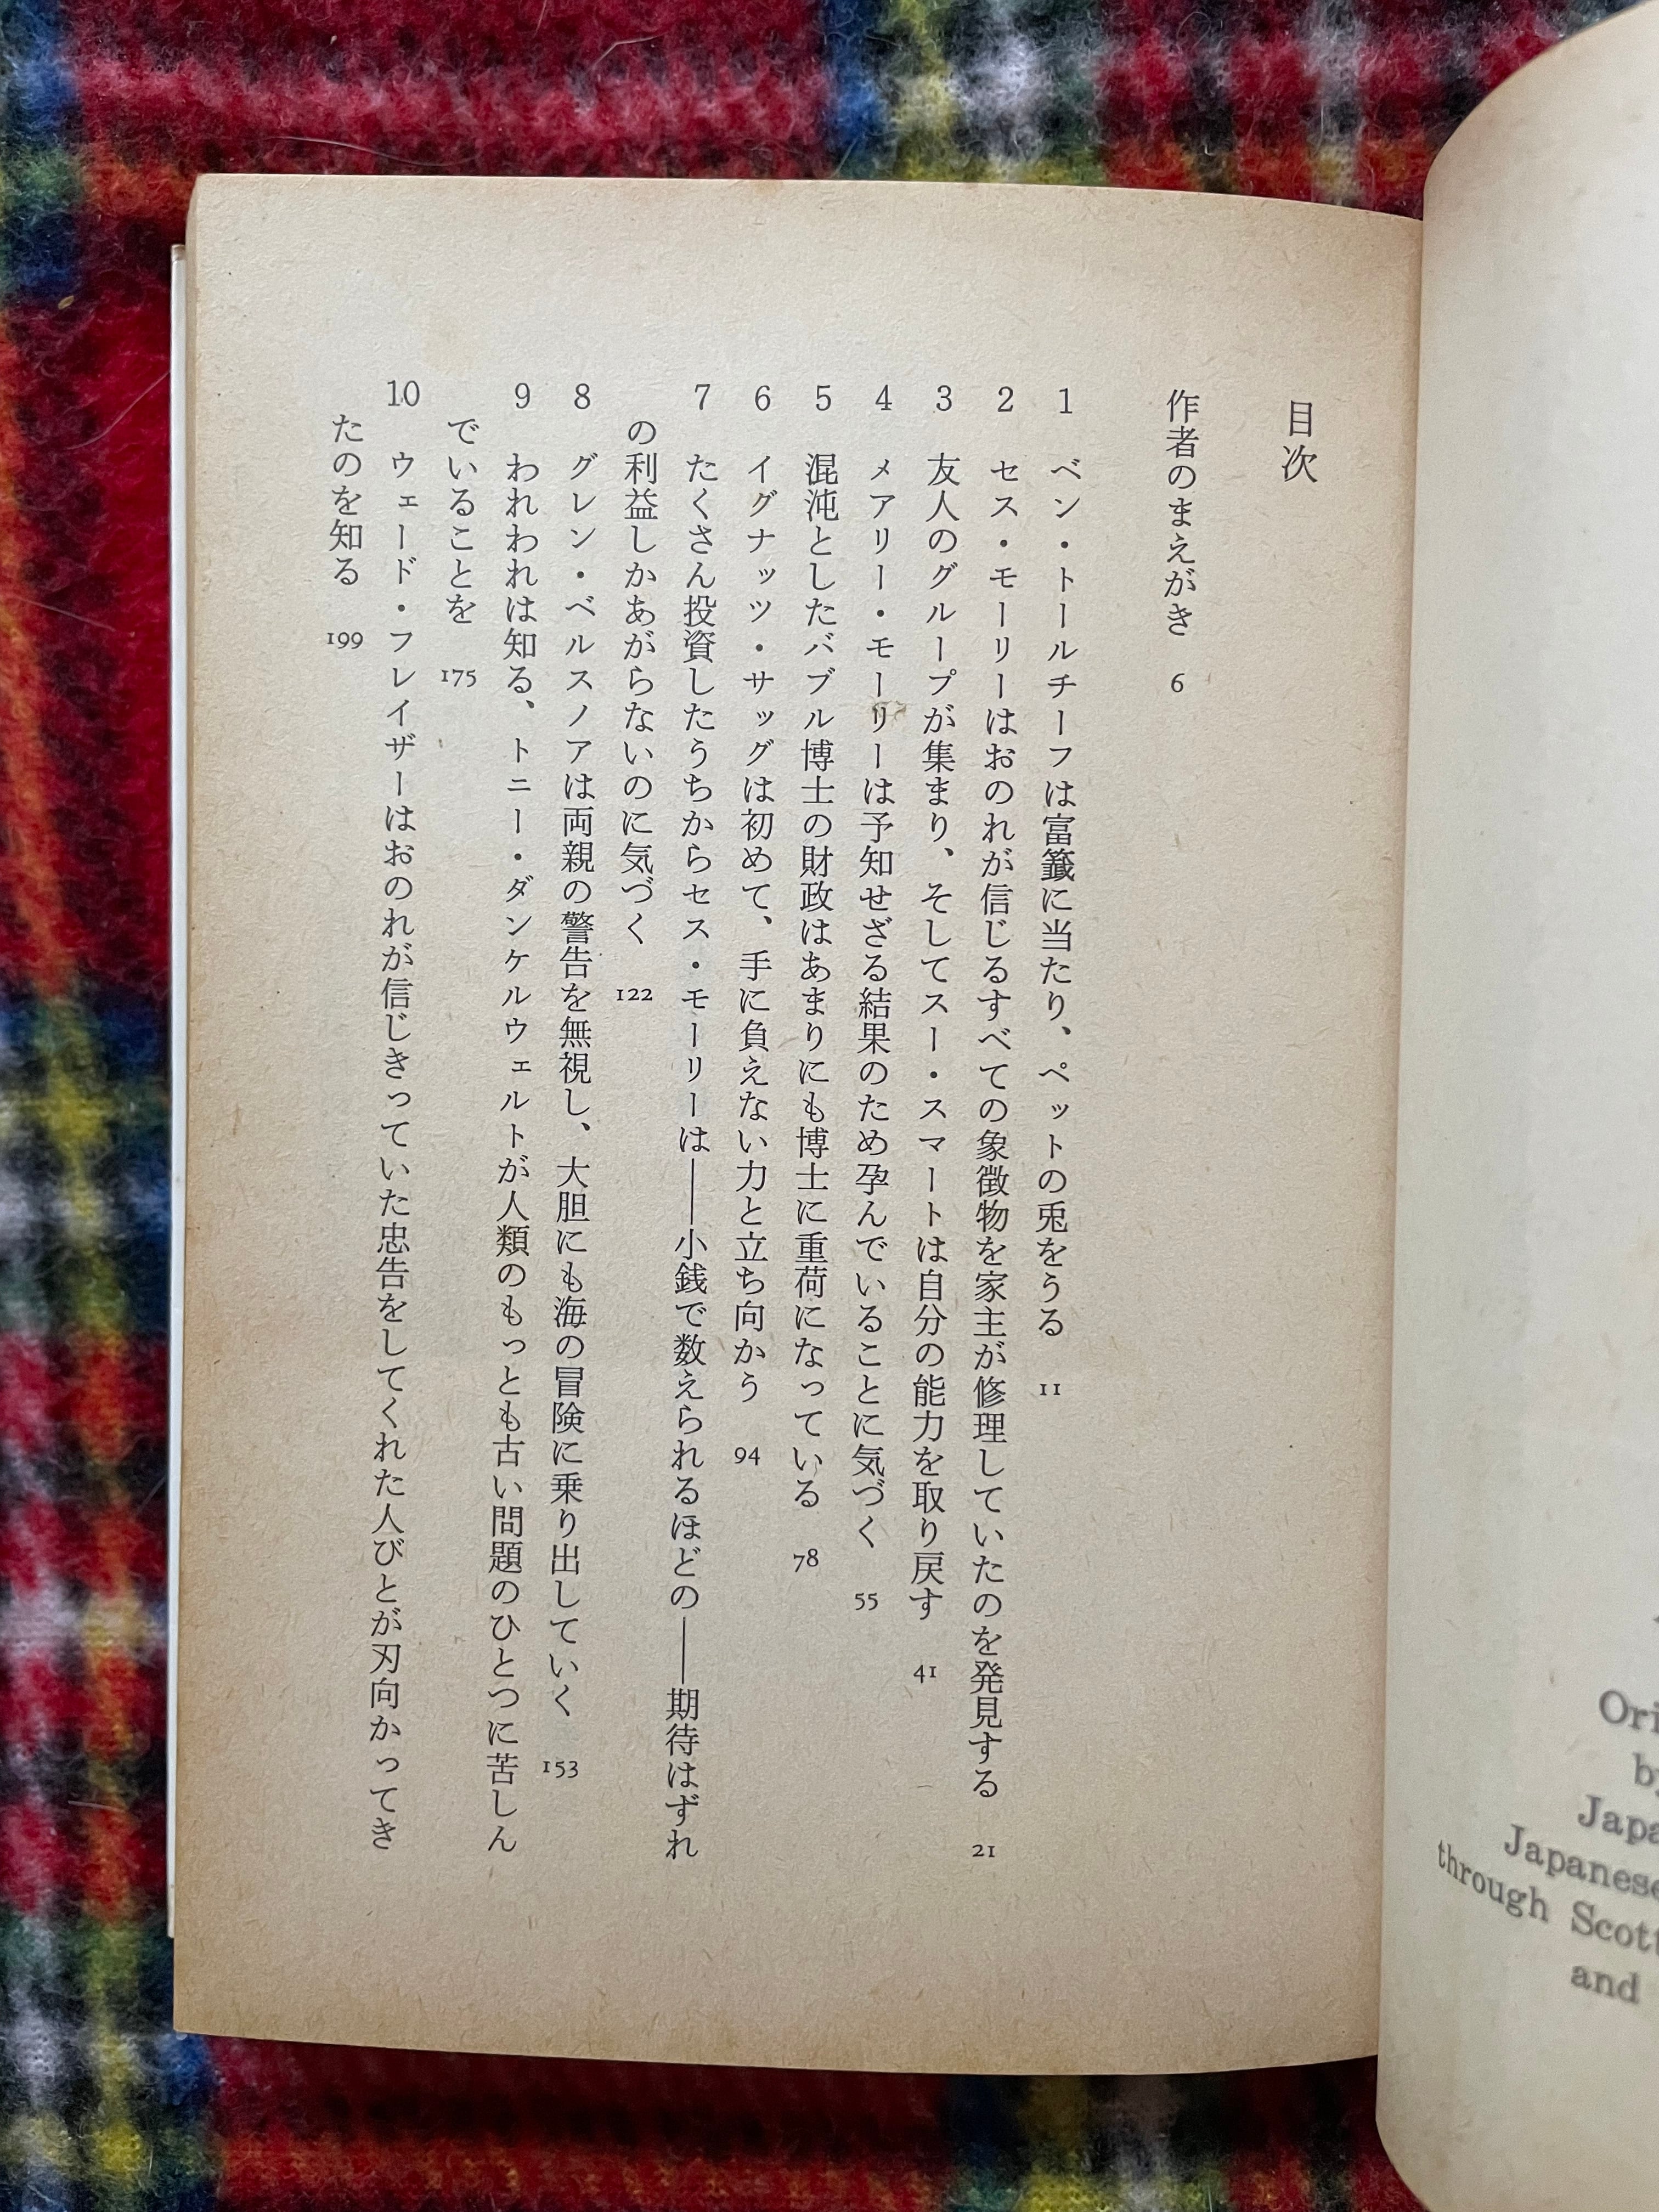 目次
作者のまえがき 6
1 ベン・トールチーフは富籤に当たり、ペットの兎をうる 11
2 セス・モーリーはおのれが信じるすべての象徴物を家主が修理していたのを発見する 21
3 友人のグループが集まり、そしてスー・スマートは自分の能力を取り戻す 41
4 メアリー・モーリーは予知せざる結果のため孕んでいることに気づく 55
5 混沌としたバブル博士の財政はあまりにも博士に重荷になっている 78
6 イグナッツ・サッグは初めて、手に負えない力と立ち向かう 94
7 たくさん投資したうちからセス・モーリーは――小銭で数えられるほどの――期待はずれ
の利益しかあがらないのに気づく 122
8 グレン・ベルスノアは両親の警告を無視し、大胆にも海の冒険に乗り出していく 153
9 われわれは知る、トニー・ダンケルウェルトが人類のもっとも古い問題のひとつに苦しん
でいることを 175
10 ウェード・フレイザーはおのれが信じきっていた忠告をしてくれた人びとが刃向かってき
たのを知る 199
through
and